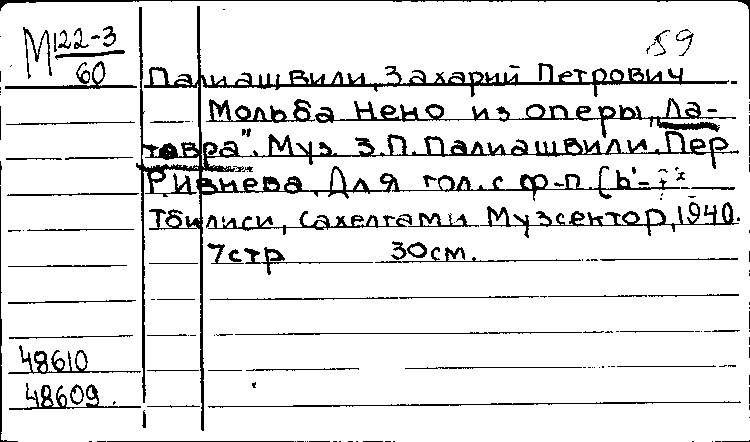 М 122-3
60
59
Палиашвили, Захарий Петрович
Мольба Нено из оперы „Ла-
тавра". Муз. З.П. Палиашвили. Пер
Р. Ивнева. Для гол. с ф-п. (b'-
Тбилиси, Сахелгами Музсектор, 1940.
7стр 30см.
48610
48609.